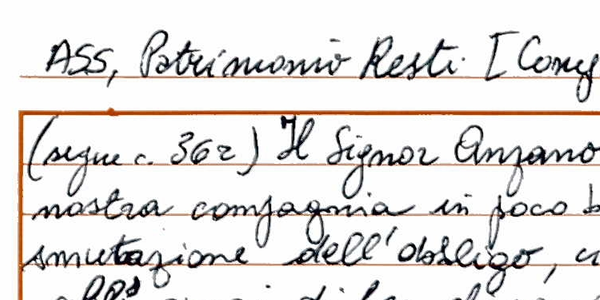 ASS, Patrimonio Resti [Comp
(segue c. 36r) Il Signor Anzano
nostra compagnia in poco b
smutazione dell'obbligo,